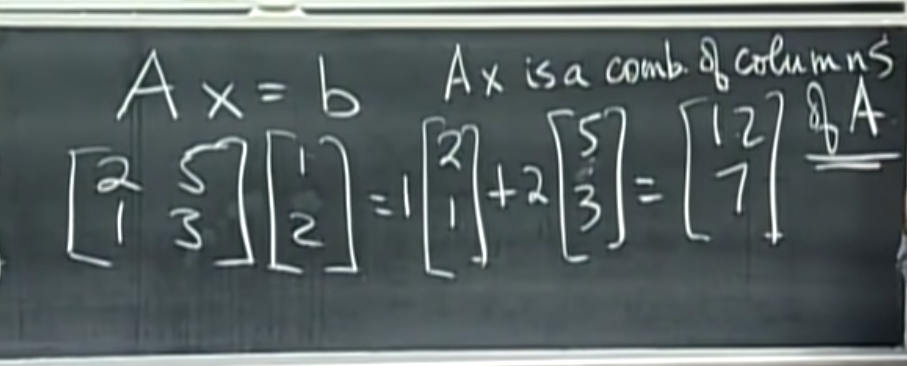 Ax = b
Ax is a comb. of columns
of A
[2 5] [1] = 1 [2] + 2 [5] = [12]
[1 3] [2] [1] [3] [7]